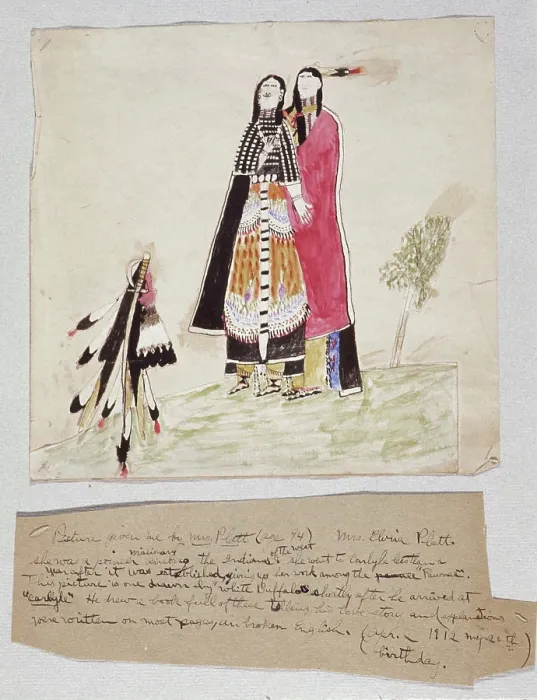 Picture given me by Mrs. Platt (age 94) Mrs. Elvira Platt.
she was a pioneer missionary among the Indians of the west she went to Carlyle
year after it was established, giving up her work among the "Pawnee".
This picture is one drawn by White Buffalo shortly after he arrived at
"Carlyle" He drew a book full of these telling his and (explanations
were written on most pages, in broken English. 1912 my 20th
birthday.